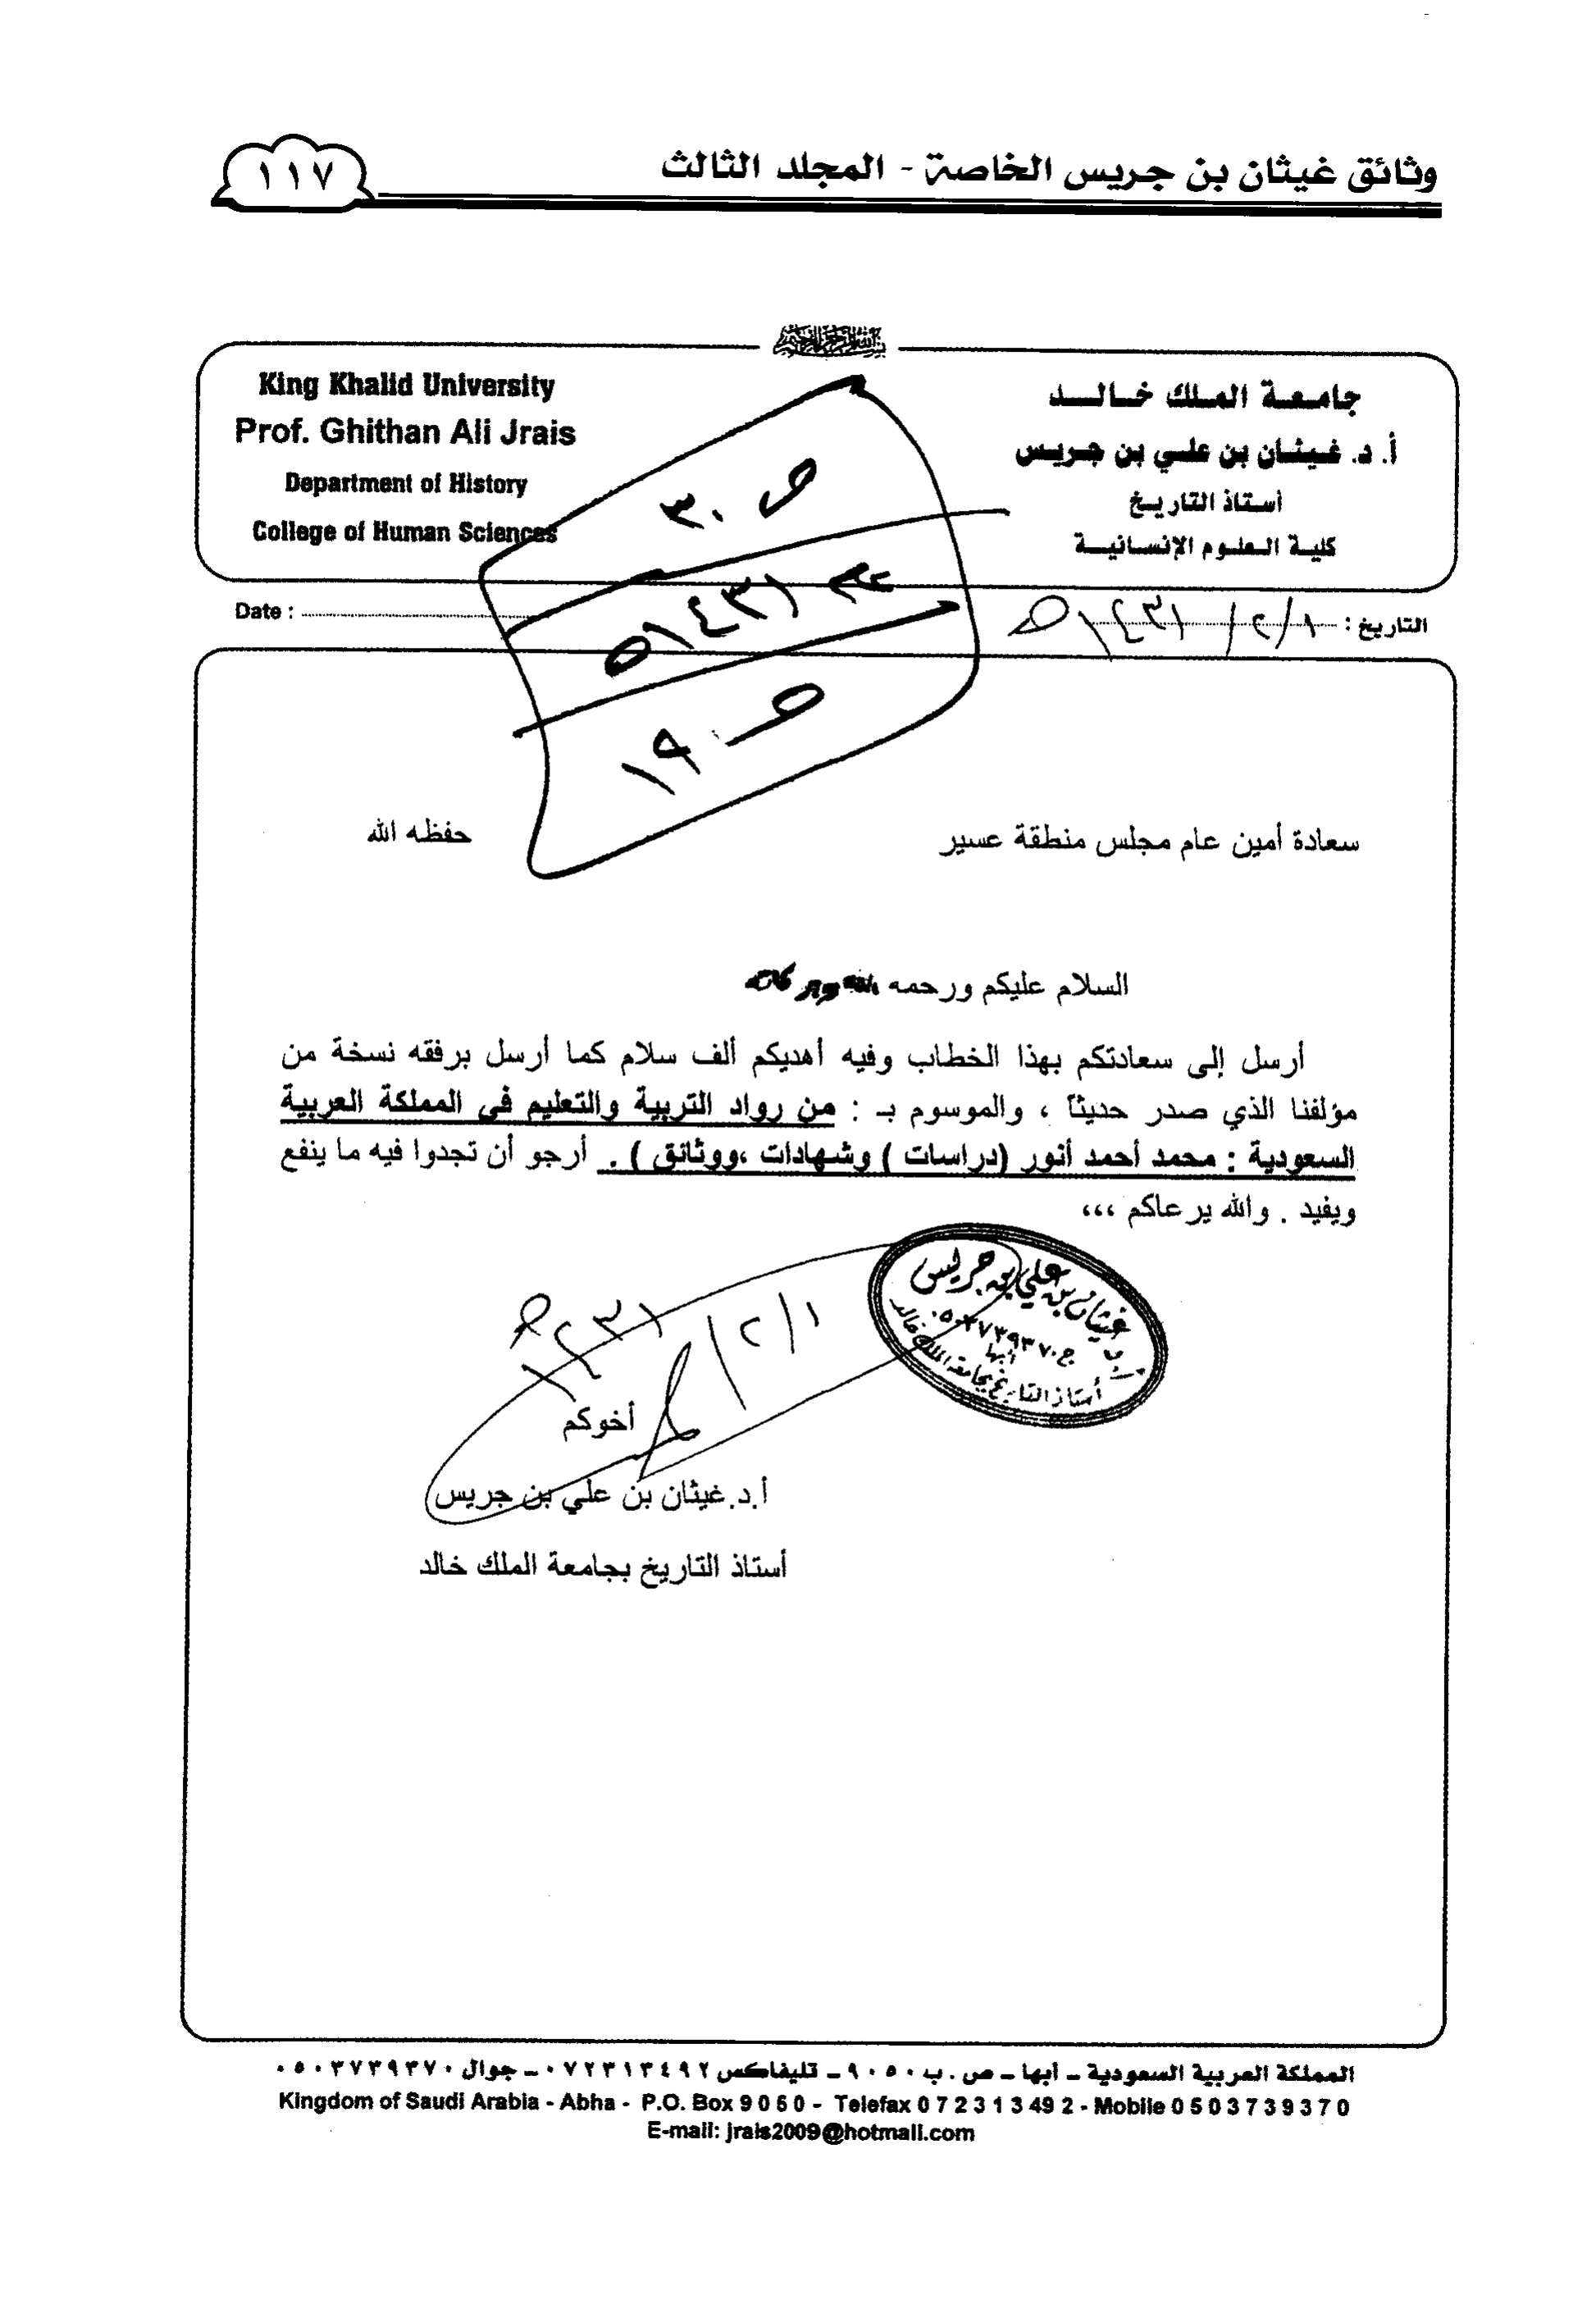 وثائق غيثان بن جريس الخاصة - المجلد الثالث
١١٧
جامعة الملك خالد
أ. د. غيثان بن علي بن جريس
أستاذ التاريخ
كلية العلوم الإنسانية
King Khalid University
Prof. Ghithan Ali Jrais
Department of History
College of Human Sciences
ص ٣٠
١٤٣١هـ
ص ١٩
التاريخ : ١/٢/١٤٣١هـ
Date :
سعادة أمين عام مجلس منطقة عسير حفظه الله
السلام عليكم ورحمه الله وبركاته
أرسل إلى سعادتكم بهذا الخطاب وفيه أهديكم ألف سلام كما أرسل برفقه نسخة من
مؤلفنا الذي صدر حديثاً ، والموسوم بـ : من رواد التربية والتعليم في المملكة العربية
السعودية : محمد أحمد أنور (دراسات ) وشهادات ،ووثائق ) . أرجو أن تجدوا فيه ما ينفع
ويفيد . والله يرعاكم ،،،
غيثان بن علي بن جريس
ج ٠٥٠٣٧٣٩٣٧٠
أبها
أستاذ التاريخ بجامعة الملك خالد
١/٢/١٤٣١هـ
أخوكم
أ.د.غيثان بن علي بن جريس
أستاذ التاريخ بجامعة الملك خالد
المملكة العربية السعودية – أبها – ص . ب ٩٠٥٠ – تليفاكس ٠٧٢٣١٣٤٩٢ – جوال ٠٥٠٣٧٣٩٣٧٠
Kingdom of Saudi Arabia - Abha - P.O. Box 9 0 5 0 - Telefax 0 7 2 3 1 3 49 2 - Mobile 0 5 0 3 7 3 9 3 7 0
E-mail: jrais2009@hotmail.com